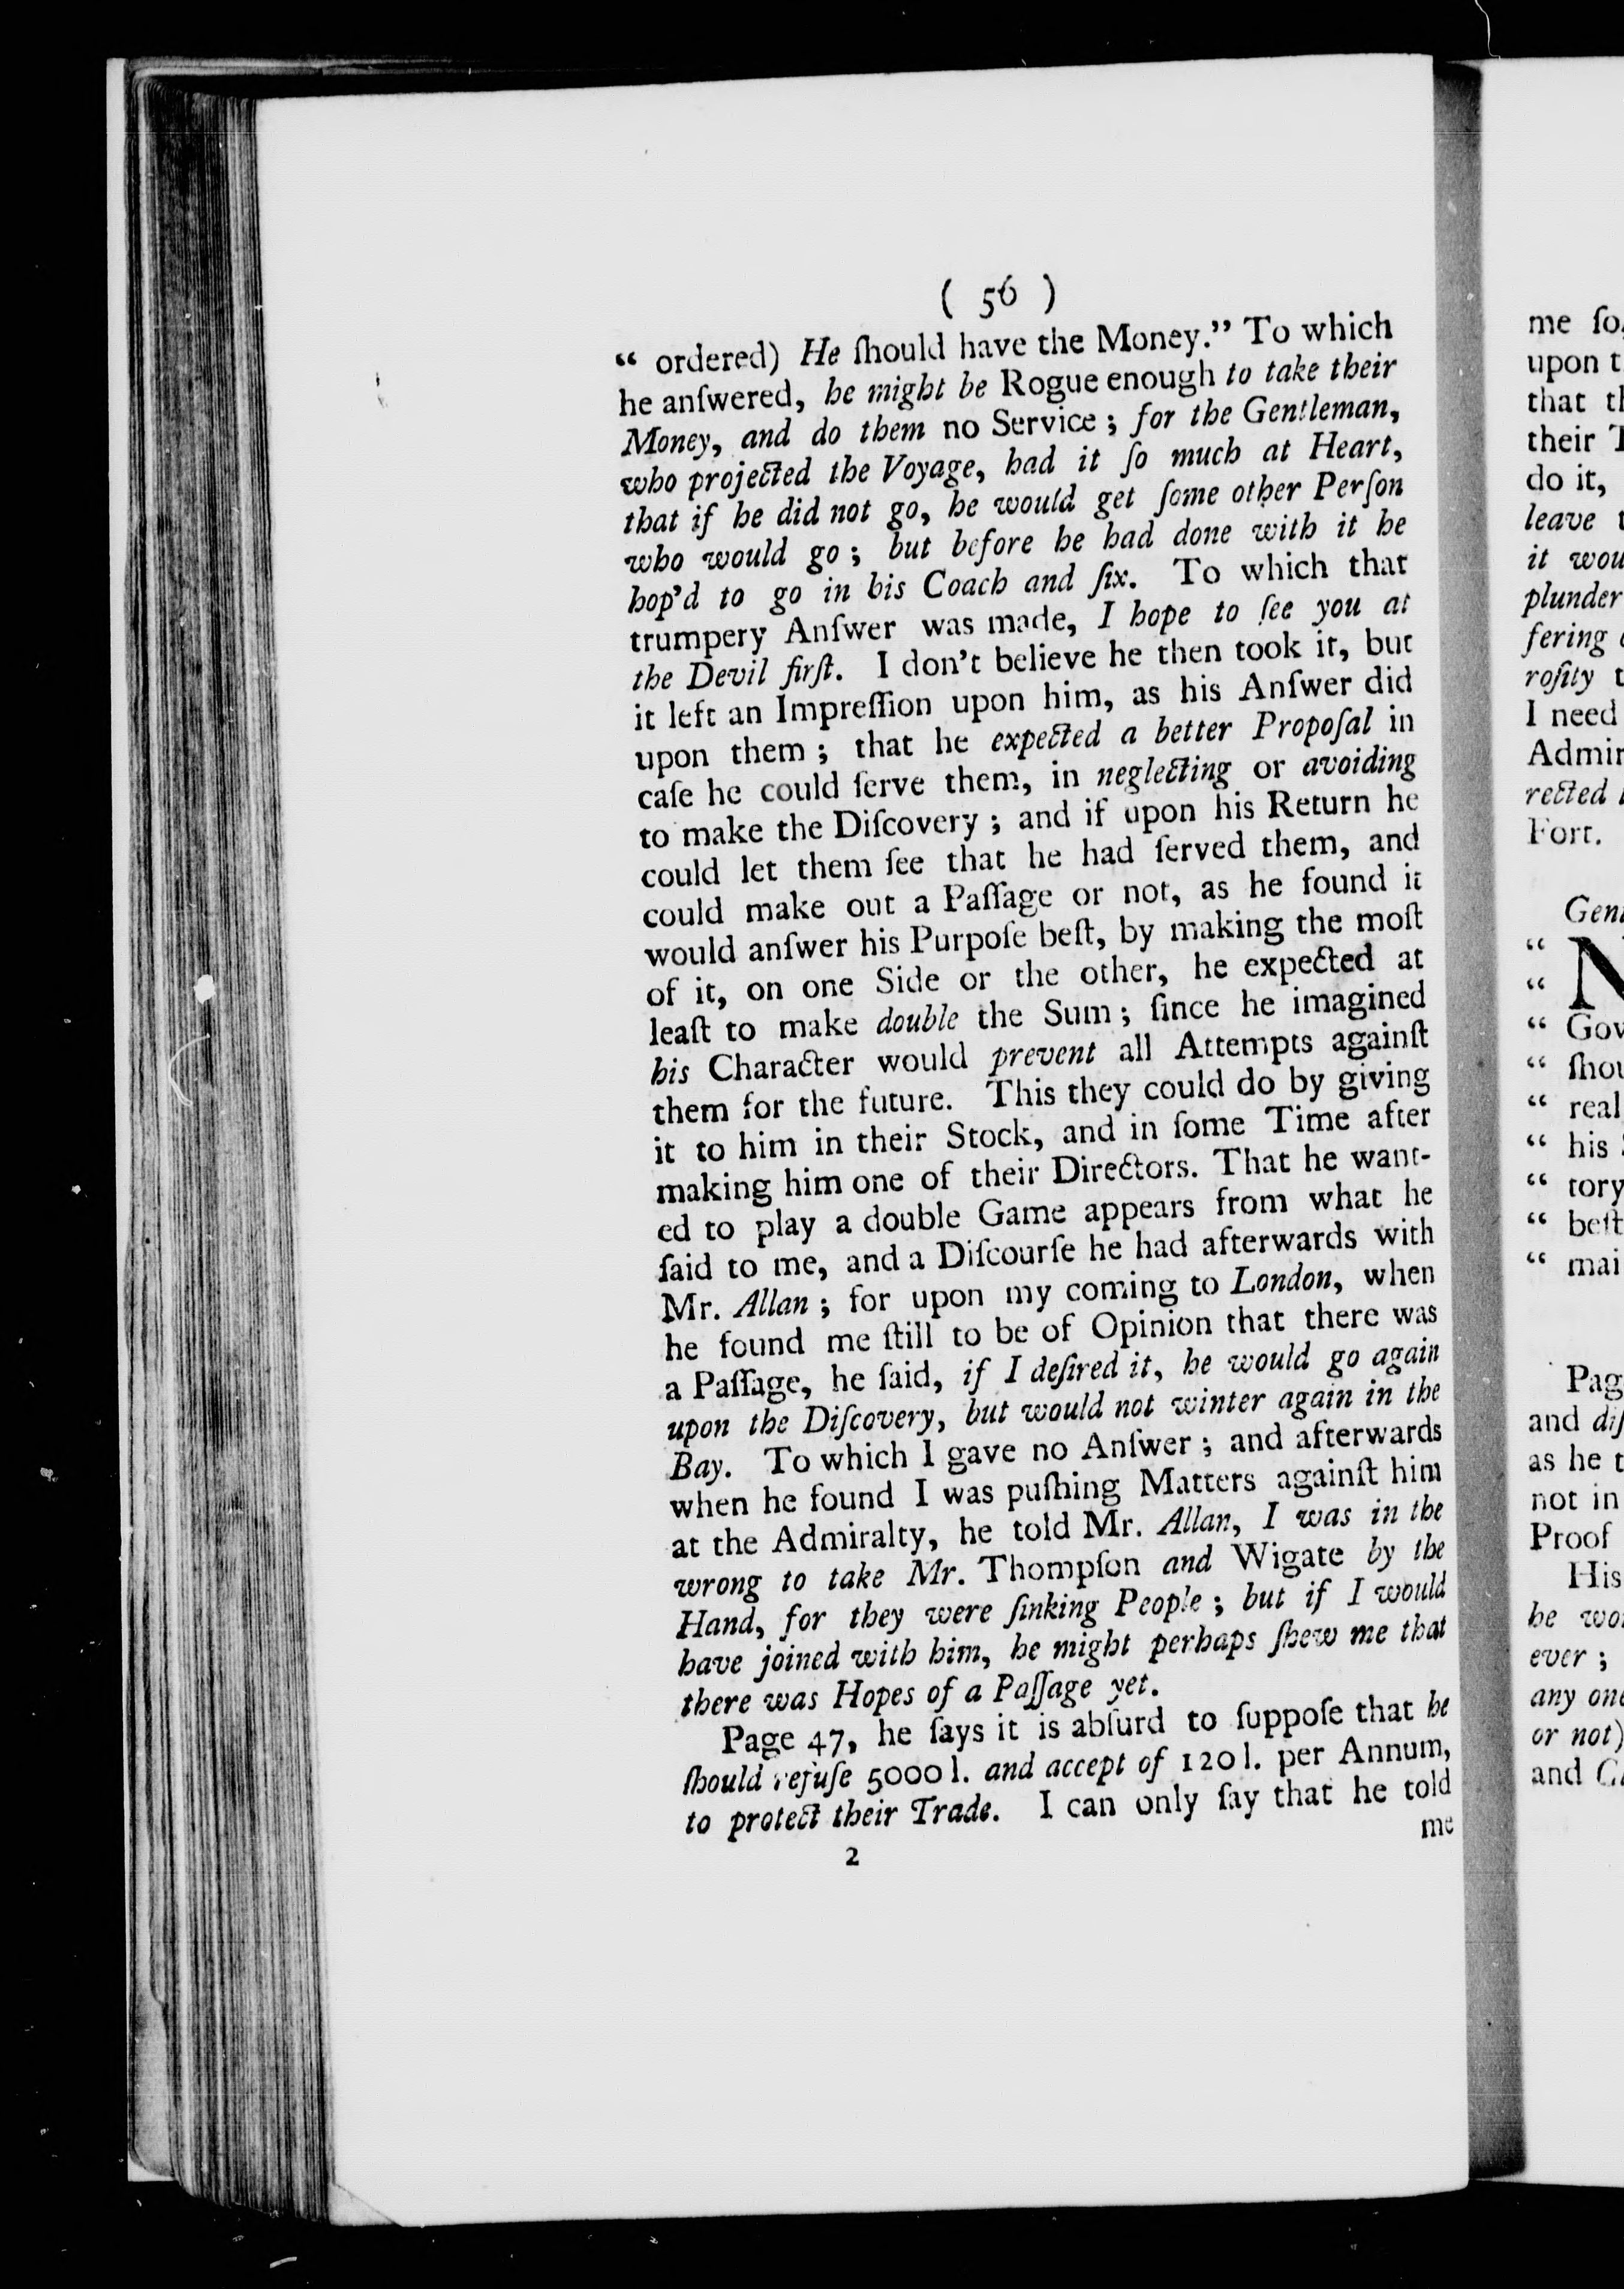 ( 56 )
“ ordered) He ſhould have the Money.” To which
he anſwered, he might be Rogue enough to take their
Money, and do them no Service ; for the Gentleman,
who projected the Voyage, had it ſo much at Heart,
that if he did not go, he would get ſome other Perſon
who would go ; but before he had done with it he
hop’d to go in his Coach and ſix. To which that
trumpery Anſwer was made, I hope to ſee you at
the Devil firſt. I don’t believe he then took it, but
it left an Impreſſion upon him, as his Anſwer did
upon them ; that he expected a better Propoſal in
caſe he could ſerve them, in neglecting or avoiding
to make the Diſcovery ; and if upon his Return he
could let them ſee that he had ſerved them, and
could make out a Paſſage or not, as he found it
would anſwer his Purpoſe beſt, by making the moſt
of it, on one Side or the other, he expected at
leaſt to make double the Sum ; ſince he imagined
his Character would prevent all Attempts againſt
them for the future. This they could do by giving
it to him in their Stock, and in ſome Time after
making him one of their Directors. That he want-
ed to play a double Game appears from what he
ſaid to me, and a Diſcourſe he had afterwards with
Mr. Allan ; for upon my coming to London, when
he found me ſtill to be of Opinion that there was
a Paſſage, he ſaid, if I deſired it, he would go again
upon the Diſcovery, but would not winter again in the
Bay. To which I gave no Anſwer ; and afterwards
when he found I was puſhing Matters againſt him
at the Admiralty, he told Mr. Allan, I was in the
wrong to take Mr. Thompſon and Wigate by the
Hand, for they were ſinking People ; but if I would
have joined with him, he might perhaps ſhew me that
there was Hopes of a Paſſage yet.
Page 47, he ſays it is abſurd to ſuppoſe that he
ſhould refuſe 5000 l. and accept of 120 l. per Annum,
to protect their Trade. I can only ſay that he told
me
2
me ſo,
upon
that
their
do it,
leave
it
plunder
fering
roſity
I need
rected
Fort.
“
“
“
“
“ real
“ his
“ tory
“ beſt
“
and
as he
not in
Proof
His
he
ever ;
or not)
and